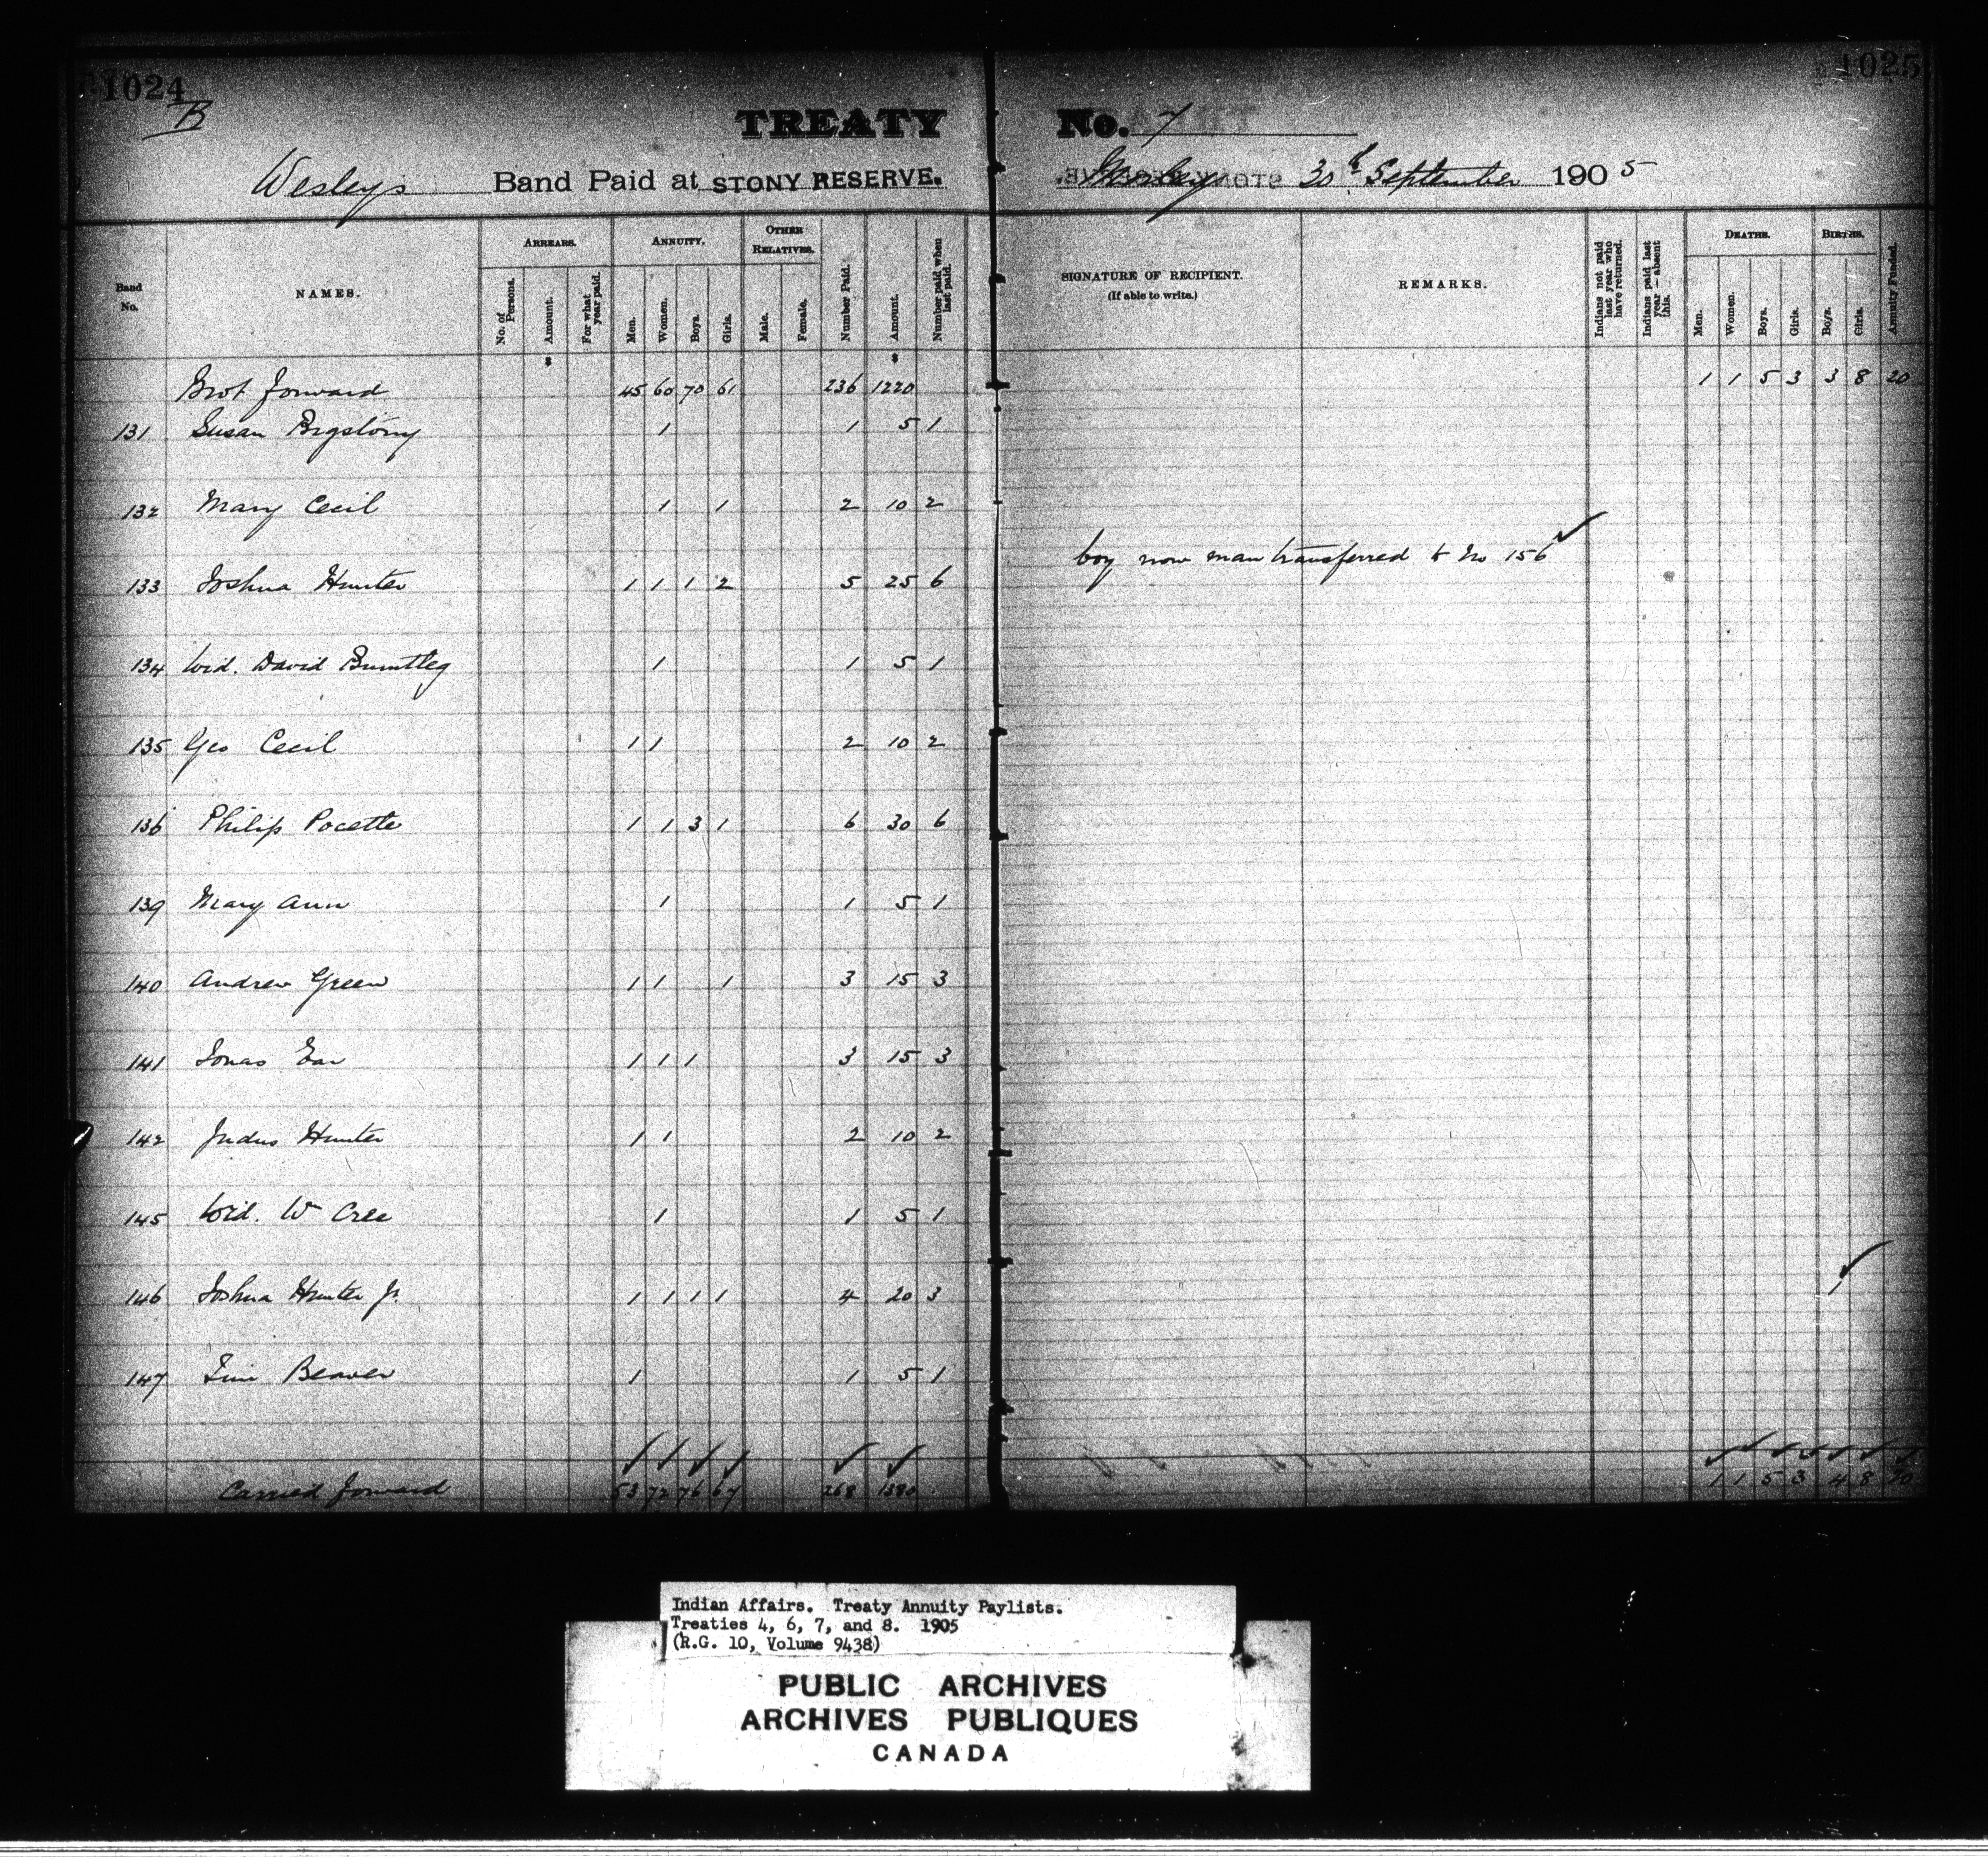 1024 1025
B
TREATY No. 7
Wesleys Band Paid at STONY RESERVE. Morley 30th September 1905
Band No. NAMES. ARREARS. ANNUITY. OTHER RELATIVES. Number Paid. Amount. Number paid when last paid. SIGNATURE OF RECIPIENT. (If able to write.) REMARKS. Indians not paid last year who have returned. Indians paid last year — absent this. DEATHS. BIRTHS. Annuity Funded.
No. of Persons. Amount. For what year paid. Men. Women. Boys. Girls. Male. Female. Men. Women. Boys. Girls. Boys. Girls.
Brot forward 45 60 70 61 236 1220 1 1 5 3 3 8 20
131 Susan Bigstony 1 1 5 1
132 Mary Cecil 1 1 2 10 2
boy now man transferred to No 156 ✓
133 Joshua Hunter 1 1 1 2 5 25 6
134 Wid. David 1 1 5 1
135 Geo Cecil 1 1 2 10 2
136 Philip Pocette 1 1 3 1 6 30 6
139 Mary Ann 1 1 5 1
140 Andrew Green 1 1 1 3 15 3
141 Jonas Ear 1 1 1 3 15 3
142 Judus Hunter 1 1 2 10 2
145 Wid. Wm Cree 1 1 5 1
146 Joshua Hunter Jr. 1 1 1 1 4 20 3 1 ✓
147 Jim Beaver 1 1 5 1
Carried forward 53 72 76 67 268 1380 1 1 5 3 4 8 20
Indian Affairs. Treaty Annuity Paylists.
Treaties 4, 6, 7, and 8. 1905
(R.G. 10, Volume 9438)
PUBLIC ARCHIVES
ARCHIVES PUBLIQUES
CANADA